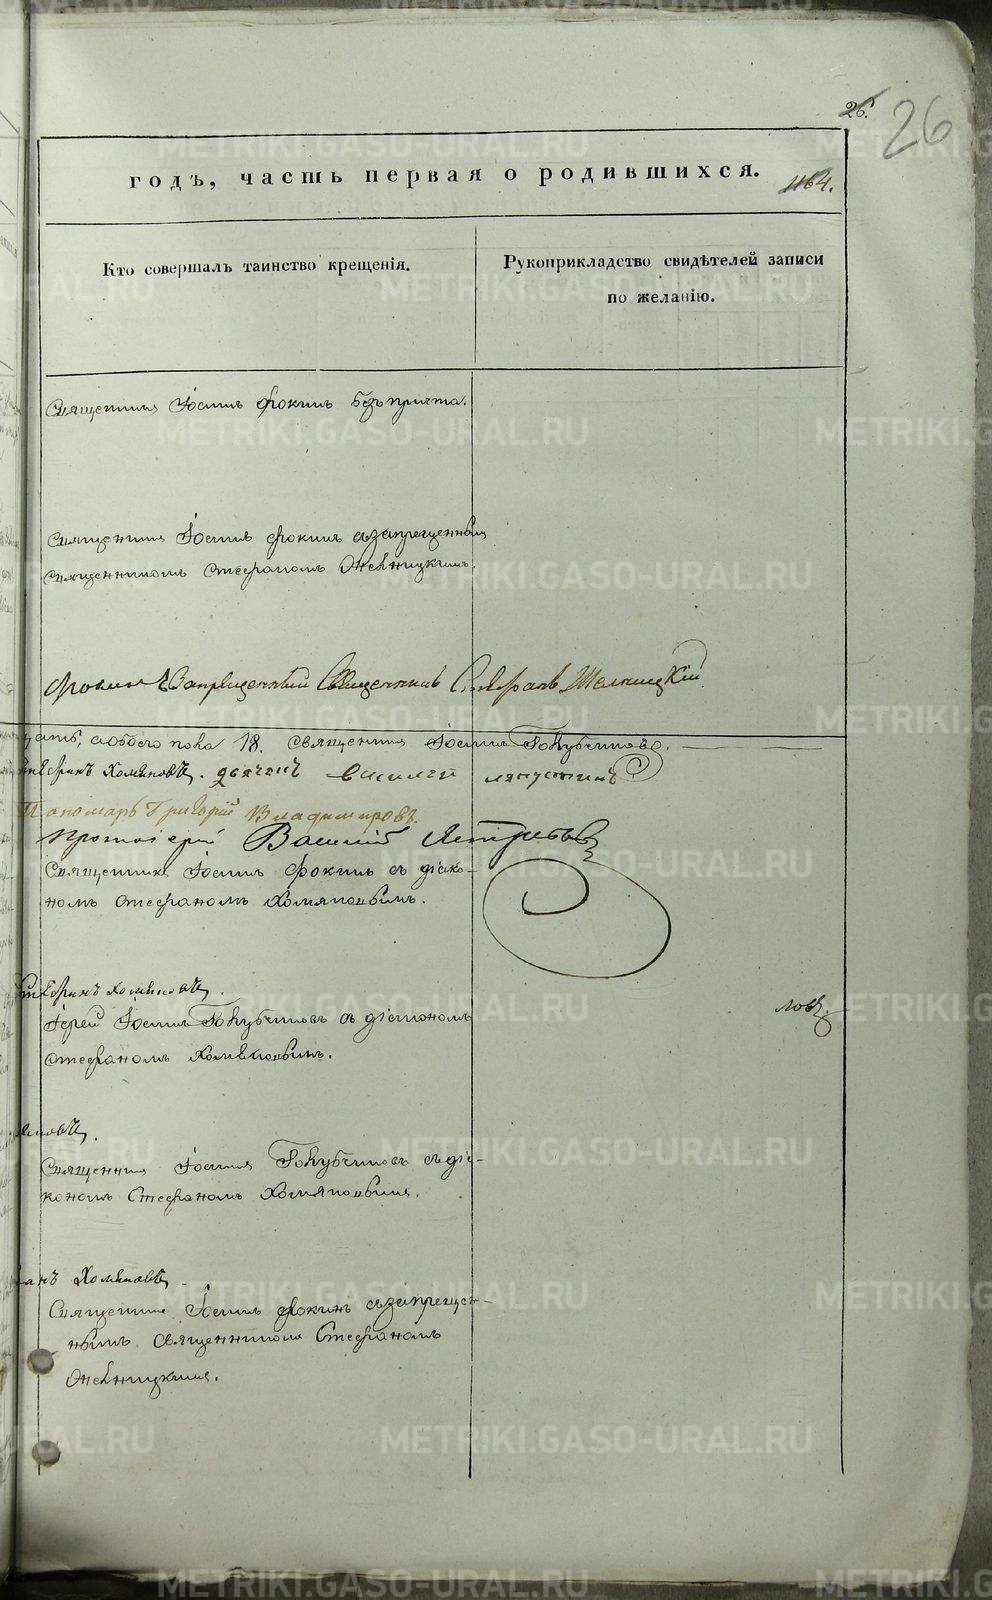 26. 26
годъ, часть первая о родившихся. 1164.
Кто совершалъ таинство крещенія.
Рукоприкладство свидѣтелей записи
по желанію.
Священникъ Іоаннъ Фокинъ безъ причта.
Священникъ Іоаннъ Фокинъ съ запрещеннымъ
священникомъ Стефаномъ
Фокинъ Запрещенный Священникъ Стефанъ
обоего пола 18. Священникъ Іоаннъ Голубчиковъ.
Хомяковъ. дьячекъ Василей Ляпустинъ
Пономарь Григорій Владимировъ.
Протоіерей Василій
Священникъ Іоаннъ Фокинъ съ діако-
номъ Стефаномъ Хомяковымъ.
Стефанъ Хомяковъ.
Іерей Іоаннъ Голубчиковъ съ діакономъ
Стефаномъ Хомяковымъ.
ловъ.
яковъ.
Священникъ Іоаннъ Голубчиковъ съ діа-
кономъ Стефаномъ Хомяковымъ.
анъ Хомяковъ
Священникъ Іоаннъ Фокинъ съ запрещен-
нымъ священникомъ Стефаномъ
METRIKI.GASO-URAL.RU